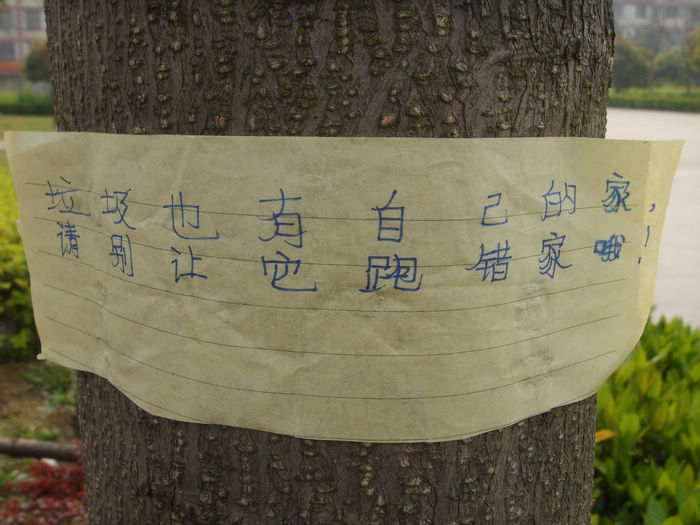 垃圾也有自己的家,
请别让它跑错家哦!